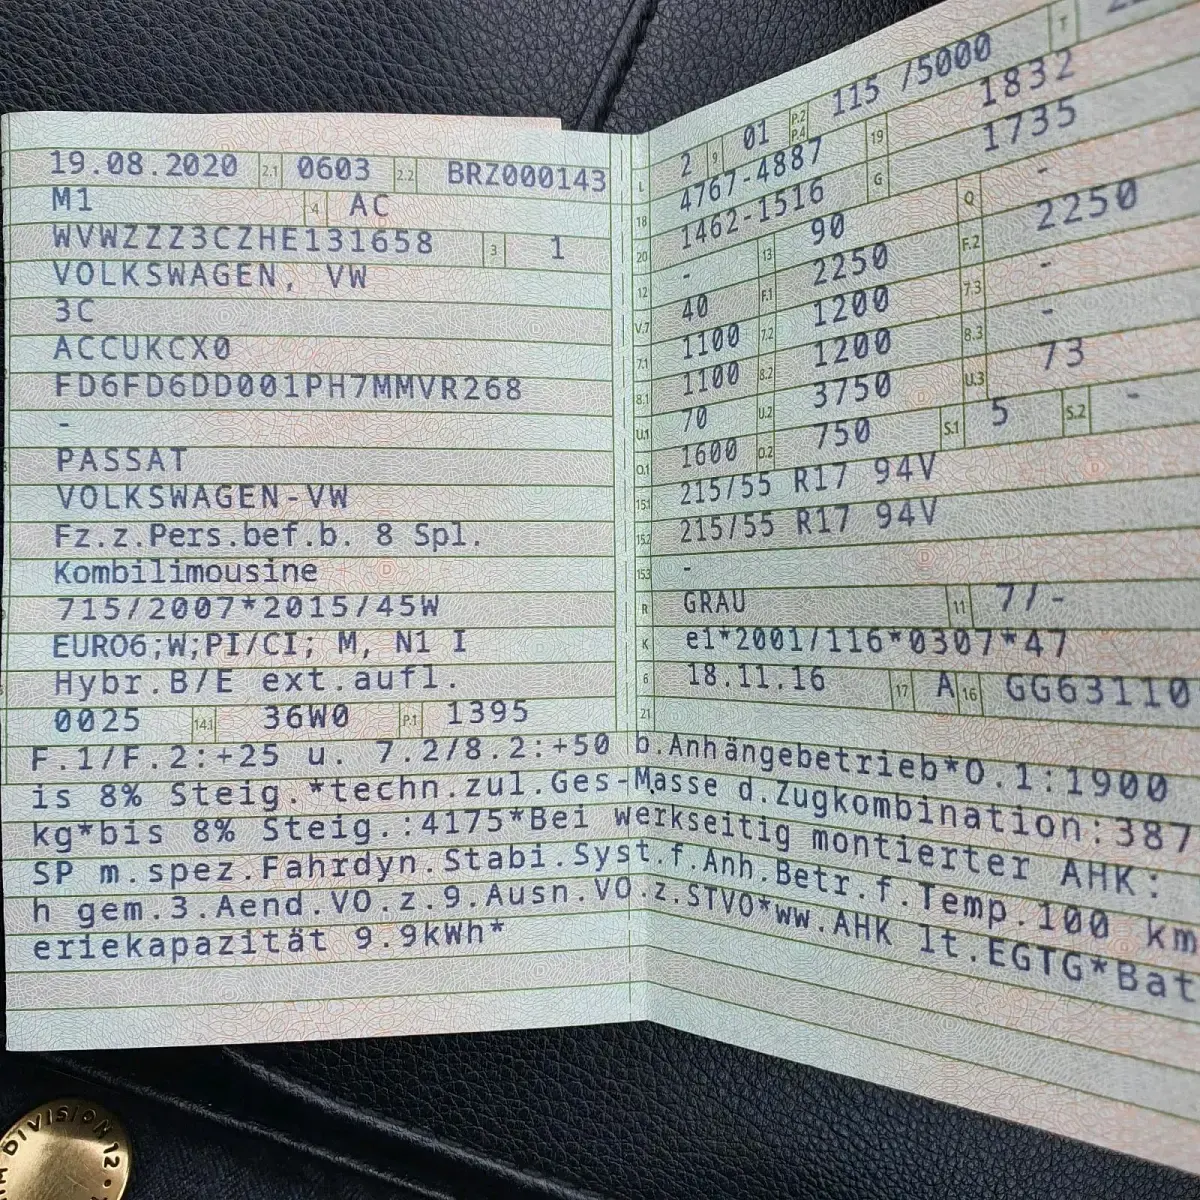 19.08.2020 2.1 0603 2.2 BRZ000143
M1 4 AC
WVWZZZ3CZHE131658 3 1
VOLKSWAGEN, VW
3C
ACCUKCX0
FD6FD6DD001PH7MMVR268
-
PASSAT
VOLKSWAGEN-VW
Fz.z.Pers.bef.b. 8 Spl.
Kombilimousine
715/2007*2015/45W
EURO6;W;PI/CI; M, N1 I
Hybr.B/E ext.aufl.
0025 14.1 36W0 P.1 1395
L 2 9 01 P.2 P.4 115 /5000 T
18 4767-4887 19 1832
20 1462-1516 G 1735
12 - 13 90 Q -
V.7 40 F.1 2250 F.2 2250
7.1 1100 7.2 1200 7.3 -
8.1 1100 8.2 1200 8.3 -
U.1 70 U.2 3750 U.3 73
O.1 1600 O.2 750 S.1 5 S.2 -
15.1 215/55 R17 94V
15.2 215/55 R17 94V
15.3 -
R GRAU 11 7/-
K e1*2001/116*0307*47
6 18.11.16 17 A 16 GG63110
21
F.1/F.2:+25 u. 7.2/8.2:+50 b.Anhängebetrieb*O.1:1900
is 8% Steig.*techn.zul.Ges-Masse d.Zugkombination:387
kg*bis 8% Steig.:4175*Bei werkseitig montierter AHK:
SP m.spez.Fahrdyn.Stabi.Syst.f.Anh.Betr.f.Temp.100 km
h gem.3.Aend.VO.z.9.Ausn.VO.z.STVO*ww.AHK lt.EGTG*Bat
eriekapazität 9.9kWh*
DIVISION 12